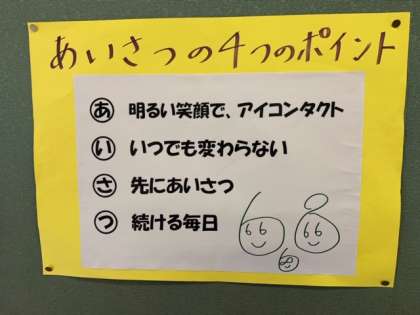 あいさつの4つのポイント
あ 明るい笑顔で、アイコンタクト
い いつでも変わらない
さ 先にあいさつ
つ 続ける毎日